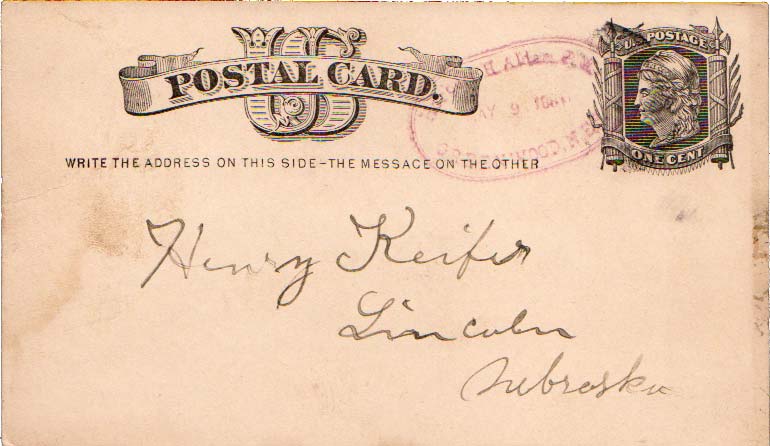 US
POSTAL CARD.
U.S. POSTAGE
ONE CENT
H. Allen P.M.
MAY 9
GREENWOOD, NEB
WRITE THE ADDRESS ON THIS SIDE-THE MESSAGE ON THE OTHER
Henry Keifer
Lincoln
Nebraska